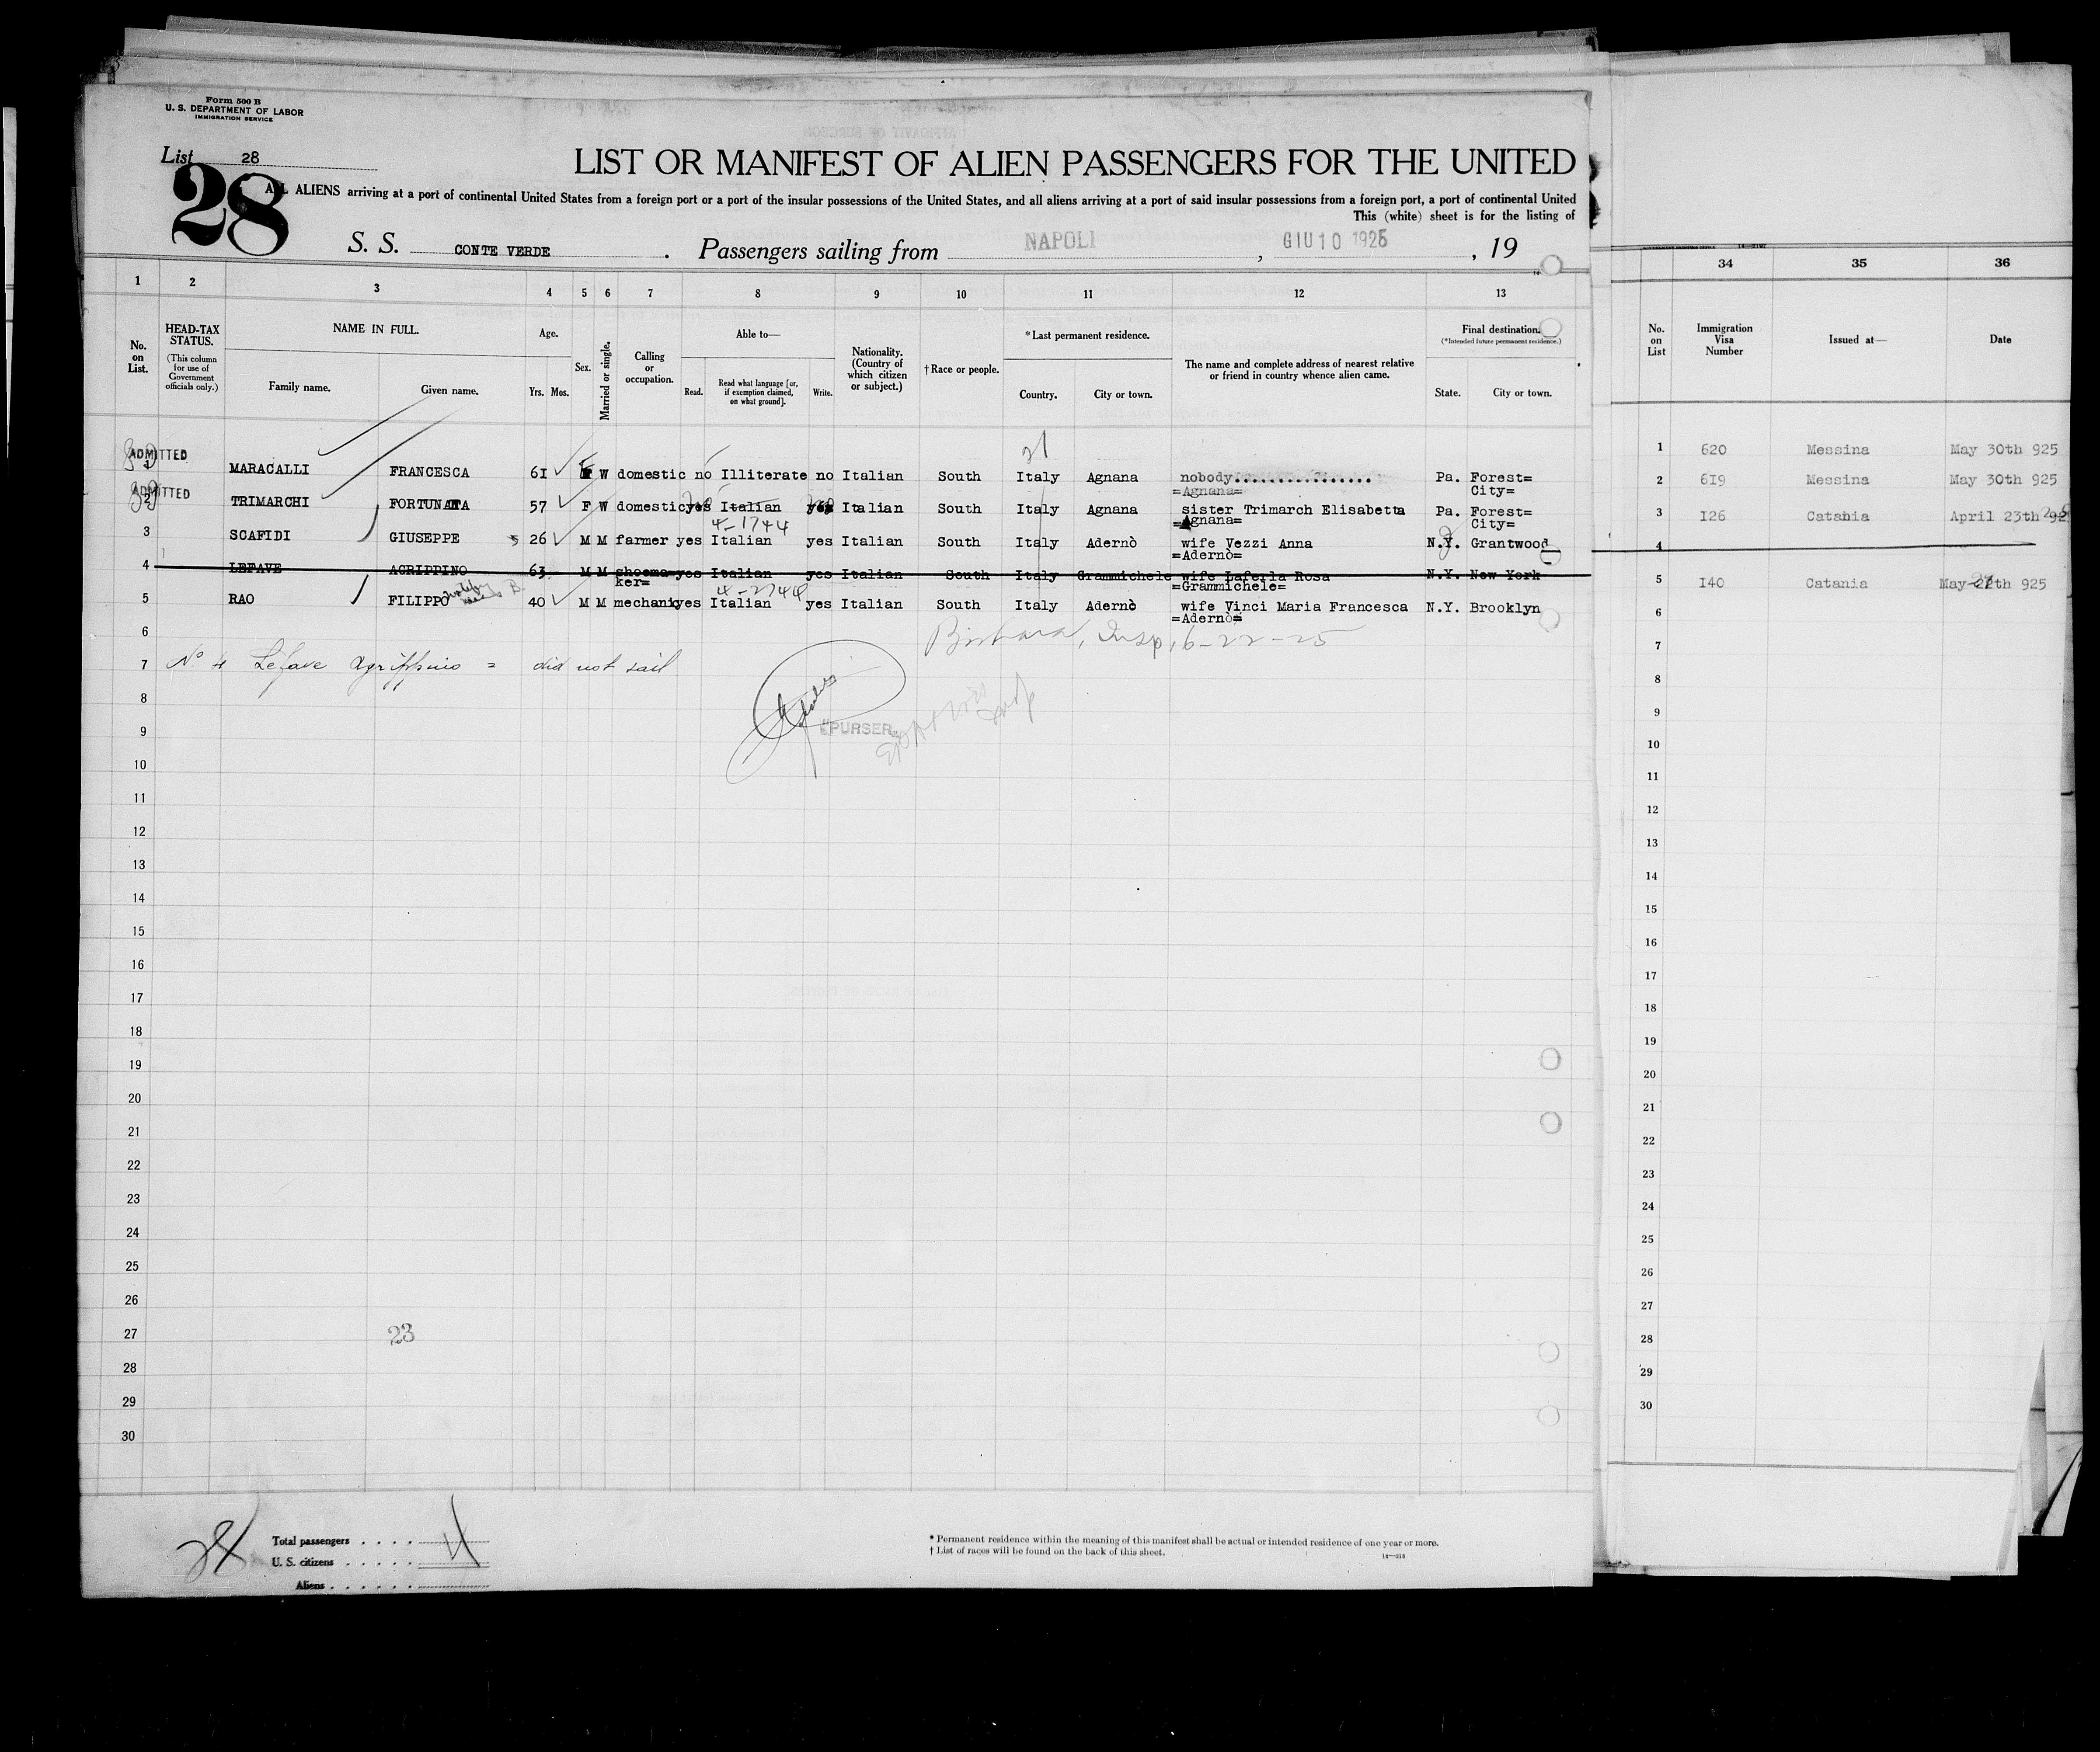 Form 500 B
U. S. DEPARTMENT OF LABOR
IMMIGRATION SERVICE
List 28
28
LIST OR MANIFEST OF ALIEN PASSENGERS FOR THE UNITED
ALL ALIENS arriving at a port of continental United States from a foreign port or a port of the insular possessions of the United States, and all aliens arriving at a port of said insular possessions from a foreign port, a port of continental United
This (white) sheet is for the listing of
S. S. CONTE VERDE. Passengers sailing from NAPOLI, GIU 10 1925, 19
1 2 3 4 5 6 7 8 9 10 11 12 13
No. on List.
HEAD-TAX STATUS.
(This column for use of Government officials only.)
NAME IN FULL.
Family name.
Given name.
Age.
Yrs. Mos.
Sex.
Married or single.
Calling or occupation.
Able to—
Read.
Read what language [or, if exemption claimed, on what ground].
Write.
Nationality. (Country of which citizen or subject.)
† Race or people.
* Last permanent residence.
Country.
City or town.
The name and complete address of nearest relative or friend in country whence alien came.
Final destination.
(*Intended future permanent residence.)
State.
City or town.
34 35 36
No. on List
Immigration Visa Number
Issued at—
Date
ADMITTED
1 MARACALLI FRANCESCA 61 F W domestic no Illiterate no Italian South Italy Agnana nobody................. Pa. Forest=
=Agnana= City=
ADMITTED
2 TRIMARCHI FORTUNATA 57 F W domestic yes Italian yes Italian South Italy Agnana sister Trimarch Elisabetta Pa. Forest=
=Agnana= City=
4-1744
3 SCAFIDI GIUSEPPE 26 M M farmer yes Italian yes Italian South Italy Adernò wife Vezzi Anna N.Y. Grantwood
=Adernò=
4 LEFAVE AGRIPPINO 63 M M shoema- yes Italian yes Italian South Italy Grammichele wife Laferla Rosa N.Y. New York
ker= =Grammichele=
4-2744
5 RAO FILIPPO 40 M M mechanic yes Italian yes Italian South Italy Adernò wife Vinci Maria Francesca N.Y. Brooklyn
=Adernò=
6
Insp, 6-22-25
7 No 4 Lefave Agrippino = did not sail
8
9
PURSER
10
11
12
13
14
15
16
17
18
19
20
21
22
23
24
25
26
27
23
28
29
30
1 620 Messina May 30th 925
2 619 Messina May 30th 925
3 I26 Catania April 23th 925
4
5 I40 Catania May th 925
6
7
8
9
10
11
12
13
14
15
16
17
18
19
20
21
22
23
24
25
26
27
28
29
30
Total passengers . . . . 4
U. S. citizens . . . . .
Aliens . . . . . .
* Permanent residence within the meaning of this manifest shall be actual or intended residence of one year or more.
† List of races will be found on the back of this sheet.